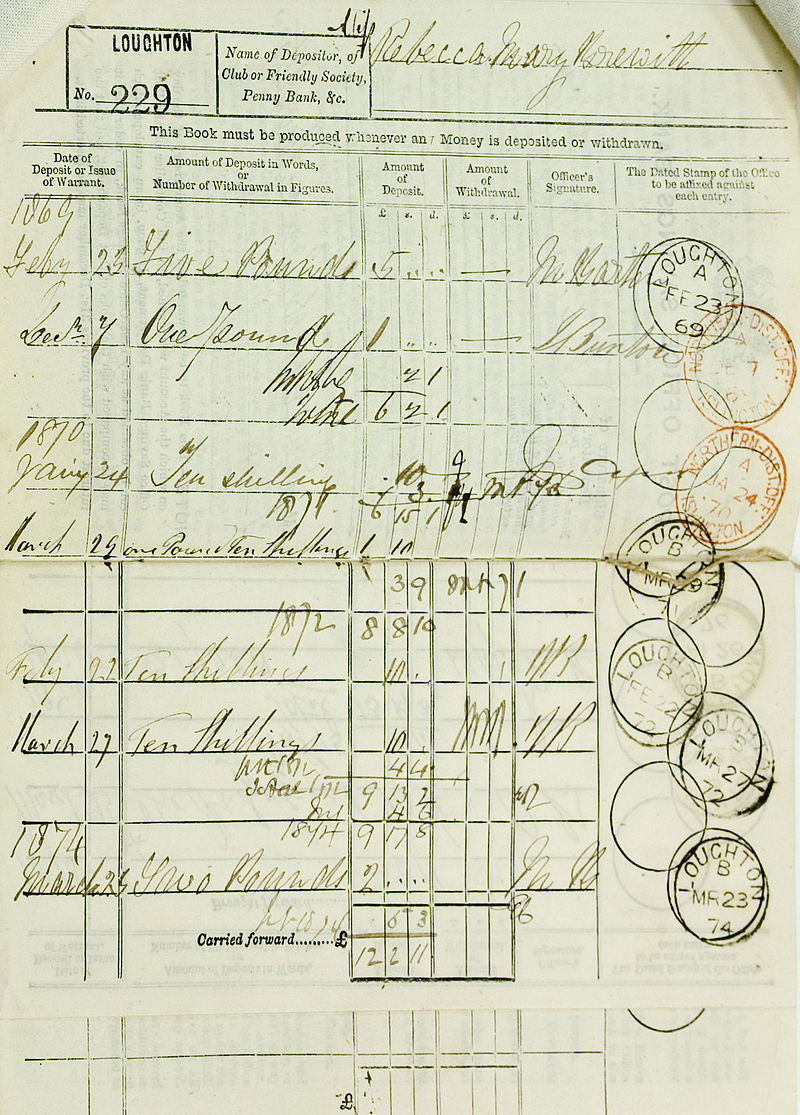 LOUGHTON
No. 229
Name of Depositor, of
Club or Friendly Society,
Penny Bank, &c.
Rebecca Mary
This Book must be produced whenever any Money is deposited or withdrawn.
Date of
Deposit or Issue
of Warrant.
Amount of Deposit in Words,
or
Number of Withdrawal in Figures.
Amount
of
Deposit.
Amount
of
Withdrawal.
Officer's
Signature.
The Dated Stamp of the Office
to be affixed against
each entry.
£ s. d. £ s. d.
1869
Feby 23 Five Pounds 5 .. .. —
LOUGHTON
A
FE 23
69
Decr. 7 One Pound 1 .. .. —
NORTHERN-DIST.OFF.
2 1
6 2 1
1870
Jany 24 Ten Shillings 10
NORTHERN-DIST.OFF.
A
JA 24
70
1871 6 15 1
March 29 One Pound Ten Shillings 1 10
LOUGHTON
B
MR 29
71
3 9
1872 8 8 10
Feby 22 Ten Shillings 10
LOUGHTON
B
FE 22
72
March 27 Ten Shillings 10
LOUGHTON
B
MR 27
72
4 4
9 13 2
4 6
1874 9 17 8
March 23 Two Pounds 2 .. ..
LOUGHTON
B
MR 23
74
5 3
Carried forward.........£ 12 2 11
£